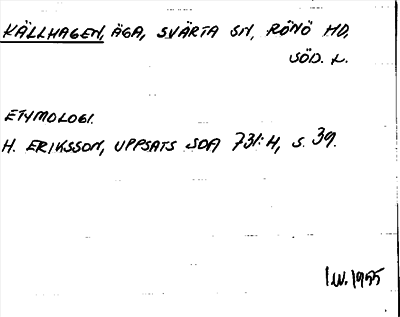 KÄLLHAGEN, ÄGA, SVÄRTA SN, RÖNÖ HD,
SÖD. L.
ETYMOLOGI.
H. ERIKSSON, UPPSATS SOA 731:H, S. 39.
I.W. 1955